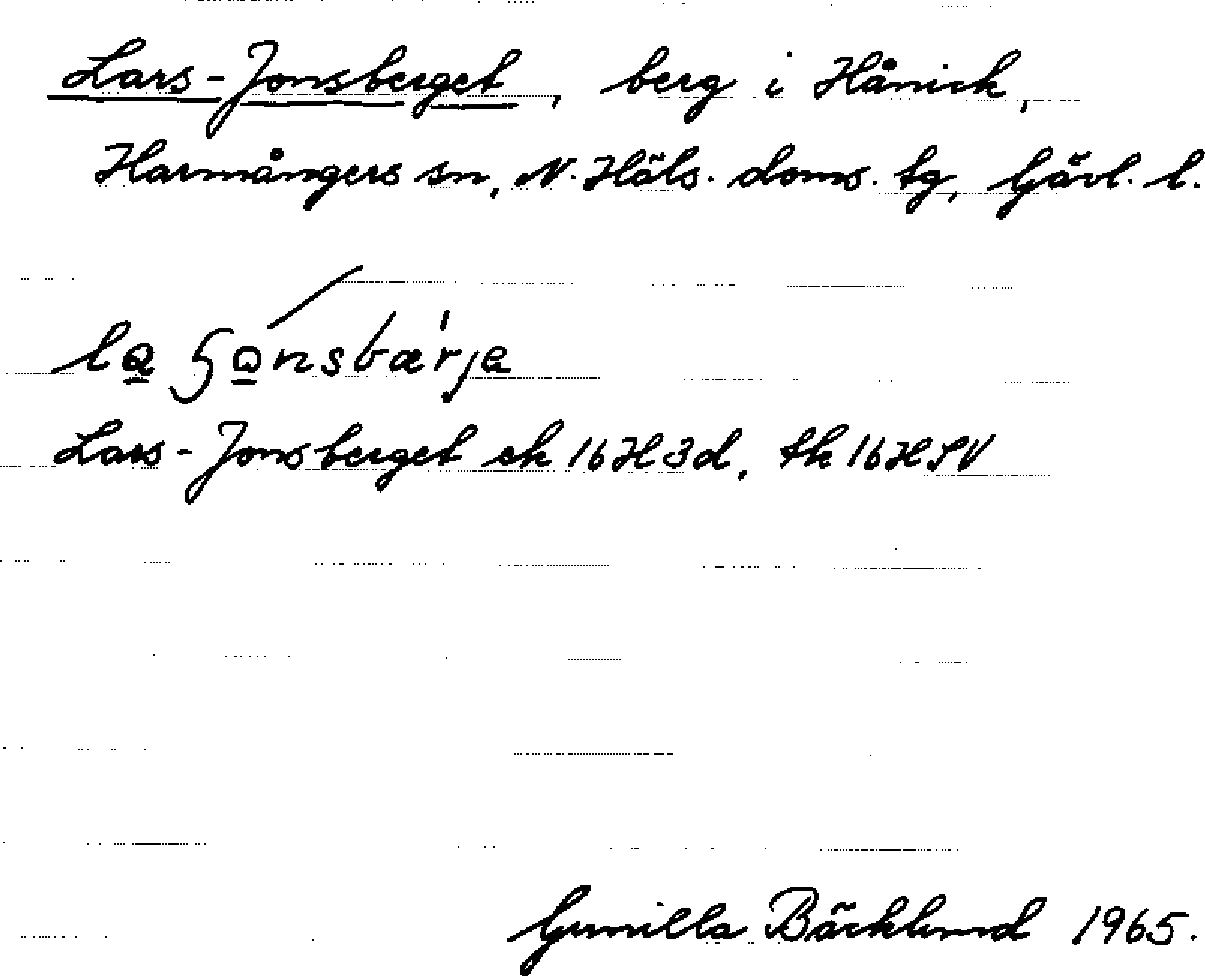 Lars-Jonsberget, berg i Hånick,
Harmångers sn, N. Häls. doms. tg, Gävl. l.
Lars-Jonsberget ek 16H3d, tk 16HSV
Gunilla Bäcklund 1965.